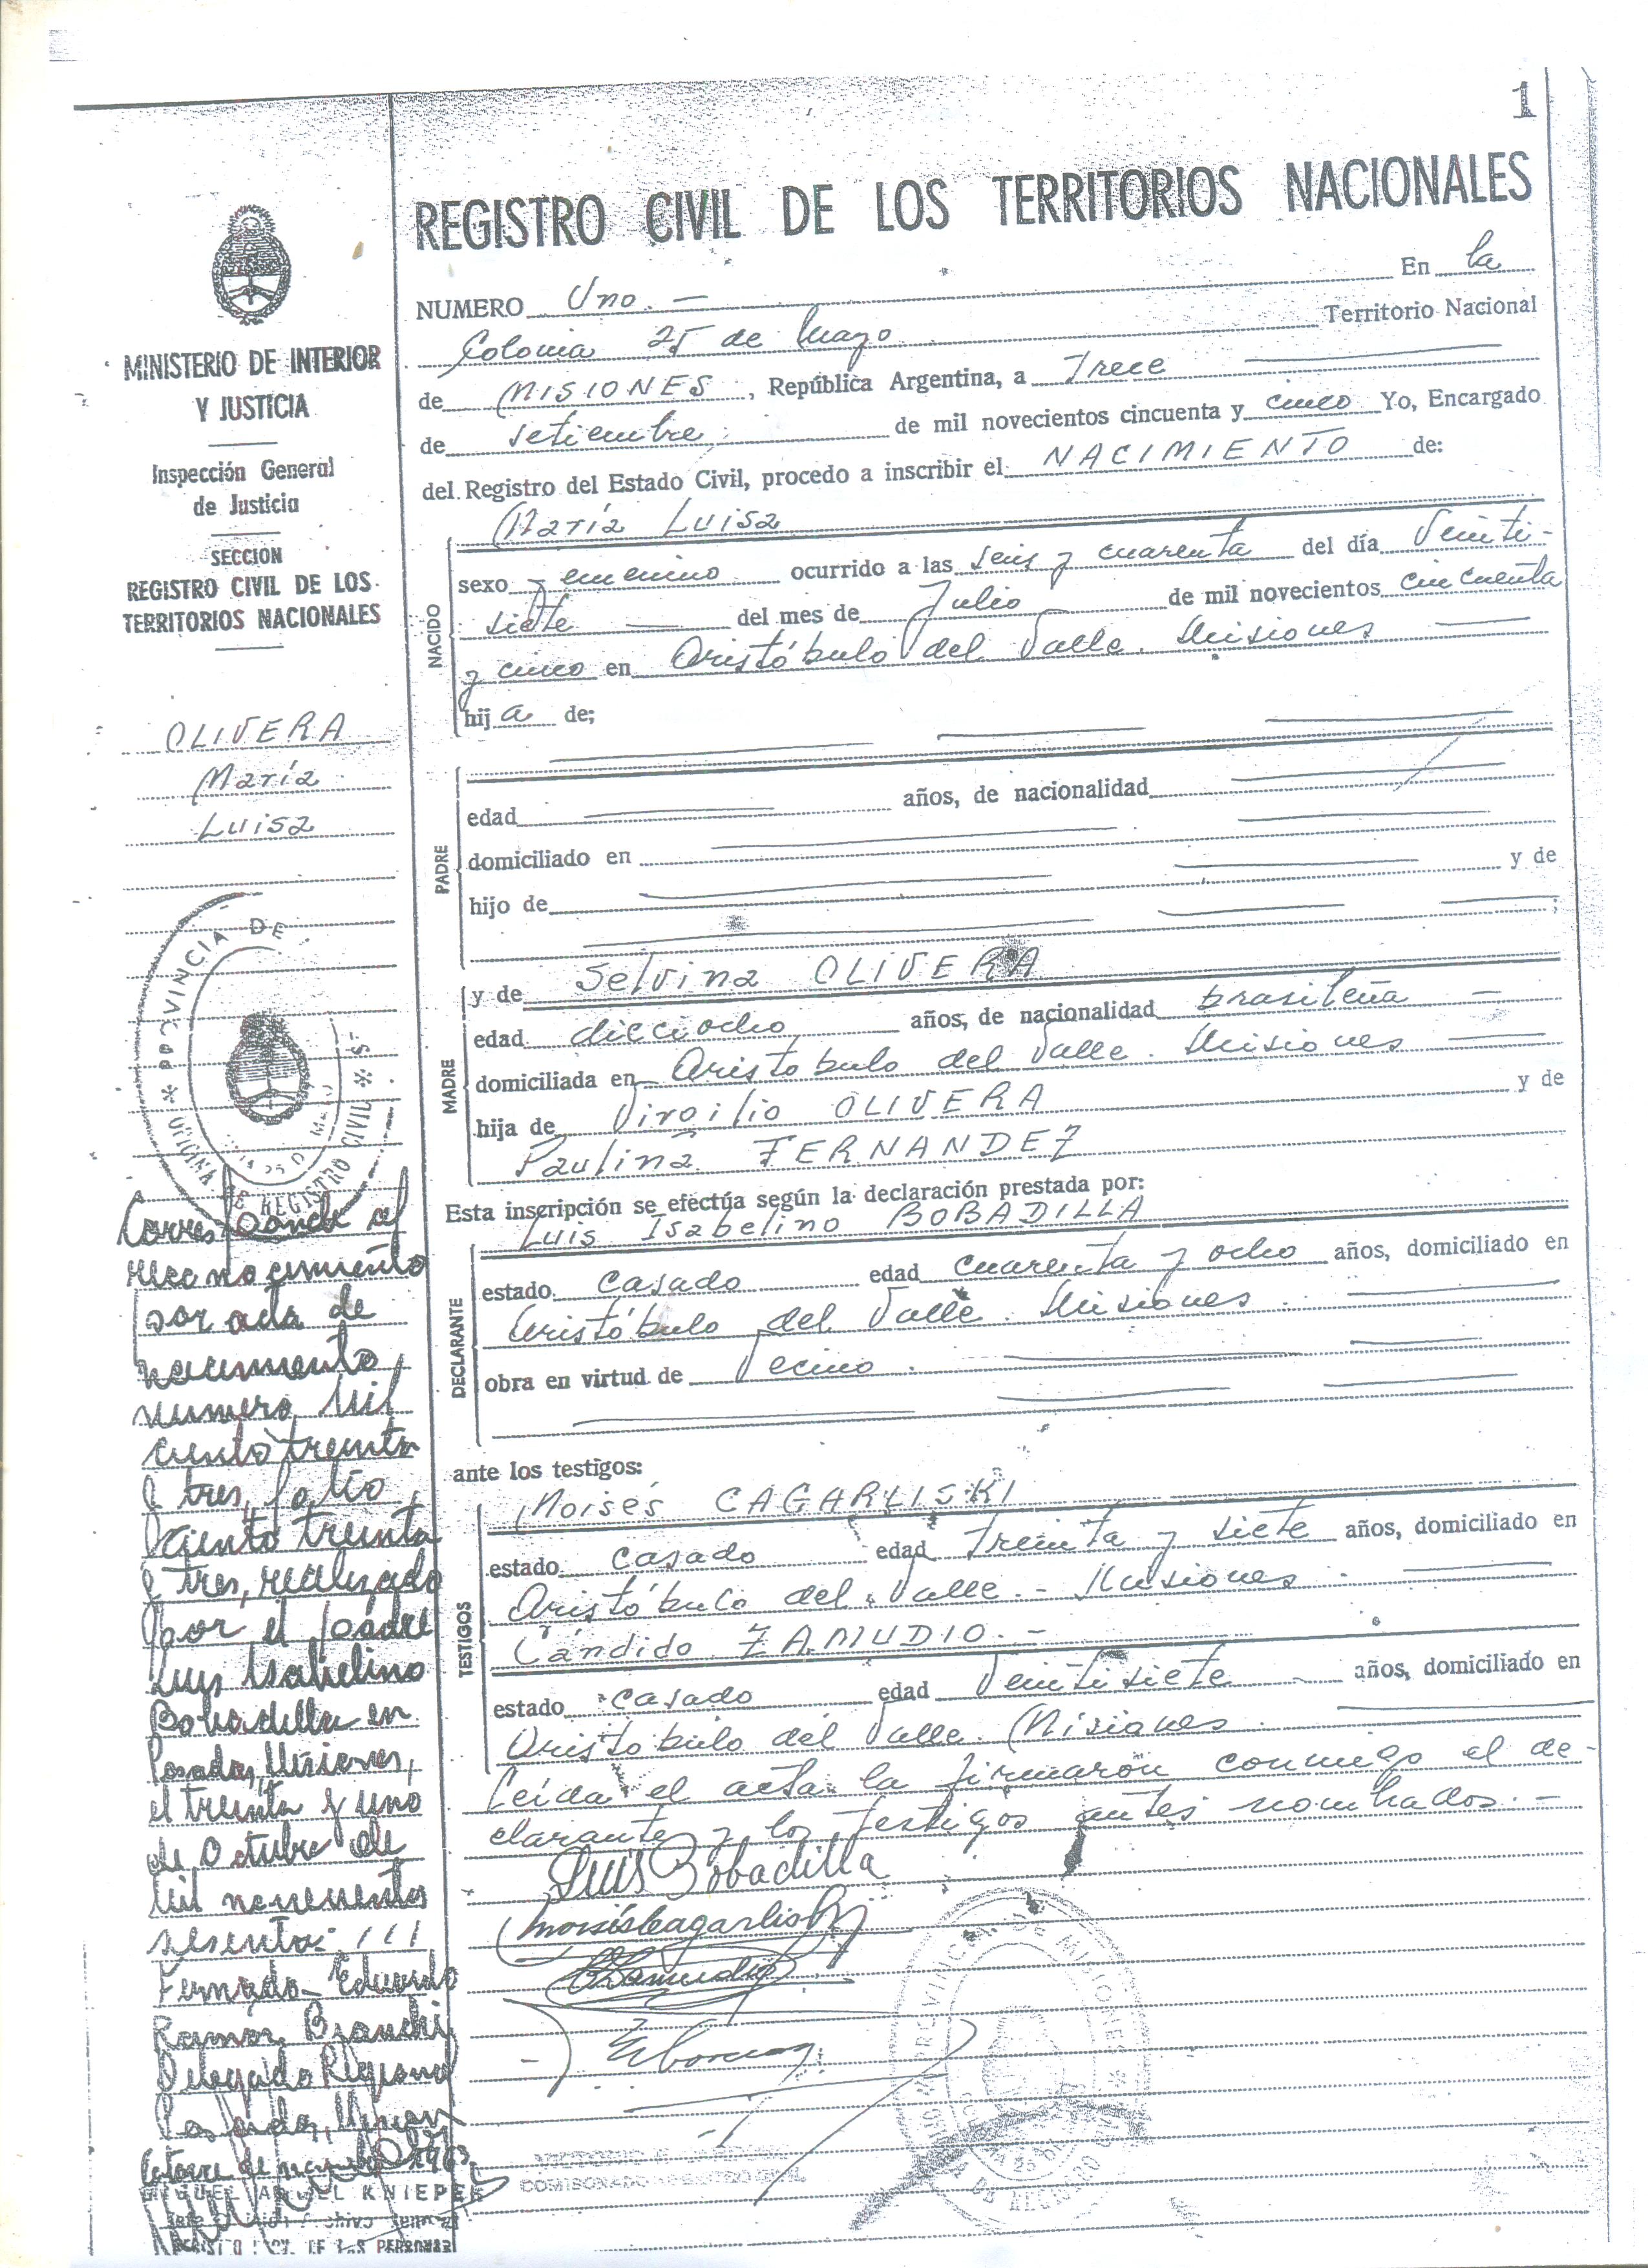 1
REGISTRO CIVIL DE LOS TERRITORIOS NACIONALES
NUMERO Uno.— En la
Colonia 25 de Mayo Territorio Nacional
de MISIONES, República Argentina, a Trece
de setiembre, de mil novecientos cincuenta y cinco Yo, Encargado
del Registro del Estado Civil, procedo a inscribir el NACIMIENTO de:
NACIDO
María Luisa
sexo femenino ocurrido a las seis y cuarenta del día Veinti-
siete del mes de Julio de mil novecientos cincuenta
y cinco en Aristóbulo del Valle. Misiones
hija de;
PADRE
edad años, de nacionalidad
domiciliado en
hijo de y de
;
MADRE
y de Selvina OLIVERA
edad dieciocho años, de nacionalidad brasileña
domiciliada en Aristobulo del Valle. Misiones
hija de Virgilio OLIVERA y de
Paulina FERNANDEZ
Esta inscripción se efectúa según la declaración prestada por:
DECLARANTE
Luis Isabelino BOBADILLA
estado casado edad cuarenta y ocho años, domiciliado en
Aristóbulo del Valle. Misiones.
obra en virtud de Vecino.
ante los testigos:
TESTIGOS
Moisés CAGARLISKI
estado casado edad Treinta y siete años, domiciliado en
Aristóbulo del Valle.- Misiones.
Cándido ZAMUDIO.-
estado casado edad Veintisiete años, domiciliado en
Aristobulo del Valle. Misiones.
Leída el acta la firmaron conmigo el de-
clarante y los testigos antes nombrados.-
Luis Bobadilla
Moisés Cagarliski
Zamudio
COMISIONADO REGISTRO CIVIL
MINISTERIO DE INTERIOR
Y JUSTICIA
Inspección General
de Justicia
SECCION
REGISTRO CIVIL DE LOS
TERRITORIOS NACIONALES
OLIVERA
María
Luisa
PROVINCIA DE
OFICINA DE REGISTRO CIVIL
Corresponde al
reconocimiento
por acta de
nacimiento
numero Mil
ciento treinta
y tres, folio
ciento treinta
y tres, realizado
por el padre
Luis Isabelino
Bobadilla en
Posadas, Misiones,
el treinta y uno
de Octubre de
Mil novecientos
sesenta: ///
Firmado Eduardo
Ramón Bianchi
Delegado Regional
Posadas, Misiones
Catorce de marzo
MIGUEL ANGEL KNIEPER
DE LAS PERSONAS